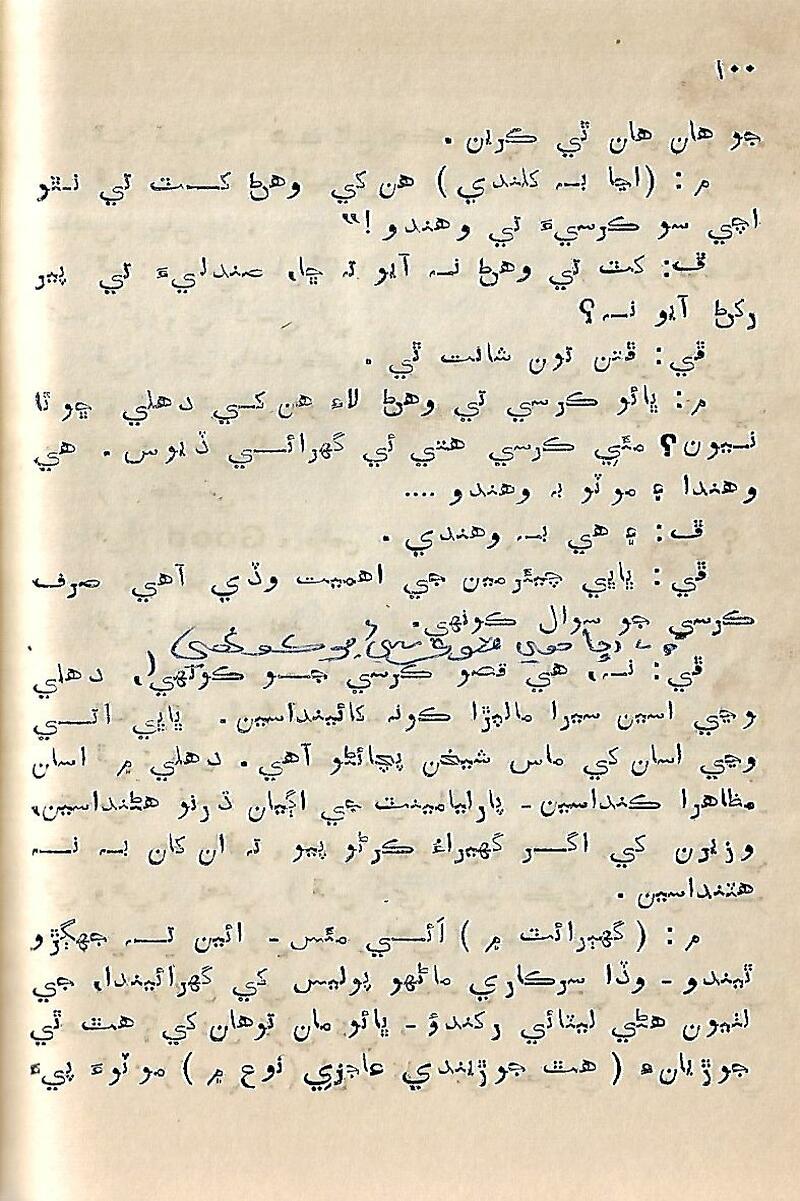 ۱۰۰
جو هان هان ٿي ڪريان .
م : (اڃا به کلندي) هن کي وهڻ کٽ تي نٿو
اچي سو ڪرسيءَ تي وهندو !“
ف: کٽ تي وهڻ نه آيو ته ڇا، صندليءَ تي پير
رکڻ آيو نه ؟
ڦي: ڦتن تون شانت ٿي .
م: ڀائو ڪرسي تي وهڻ لاءِ هن کي دهلي ڇو ٿا
نيون ؟ مئي ڪرسي هتي ئي گهرائي ڏيوس . هي
وهندا ۽ موٽو به وهندو ....
ف: ۽ هي به وهندي .
ڦي: ڀاڀي چيئرمين جي اهميت وڏي آهي صرف
ڪرسي جو سوال ڪونهي.
ڦي: نه، هي قصو ڪرسي جو ڪونهي، دهلي
وڃي اسين سيرا مالپڙا ڪونه کائينداسين. ڀاڀي اتي
وڃي اسان کي ماس شيخن پچائڻو آهي . دهلي ۾ اسان
مظاهرا ڪنداسين - پارليامينٽ جي اڳيان ڌرنو هڻنداسين،
وزيرن کي اگر گهيراءُ ڪرڻو پيو ته ان کان به نه
هٽنداسين .
م : ( گهٻرائت ۾ ) اَئي مئس - ائين ته جهڳڙو
ٿيندو - وڏا سرڪاري ماڻهو پوليس کي گهرائيندا، جي
لٺيون هڻي ليٽائي رکندؤ - ڀائو مان توهان کي هٿ ٿي
جوڙيان۽ ( هٿ جوڙيندي عاجزي نوع ۾ ) موٽوءَ پيءَ